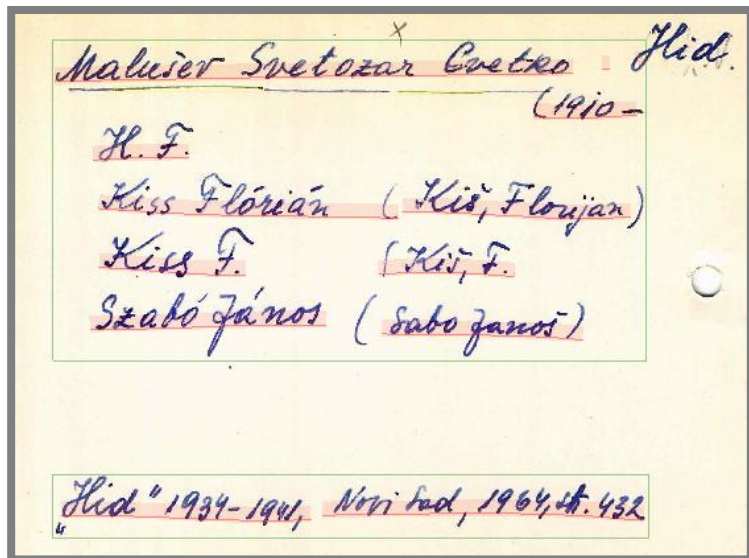 Malušev Svetozar Cvetko Hid.
(1910 –
H. F.
Kiss Flórián (Kiš, Florijan)
Kiss F. (Kiš, F.
Szabó János (Sabo Janoš)
„Hid" 1934-1941, Novi Sad, 1964, str. 432